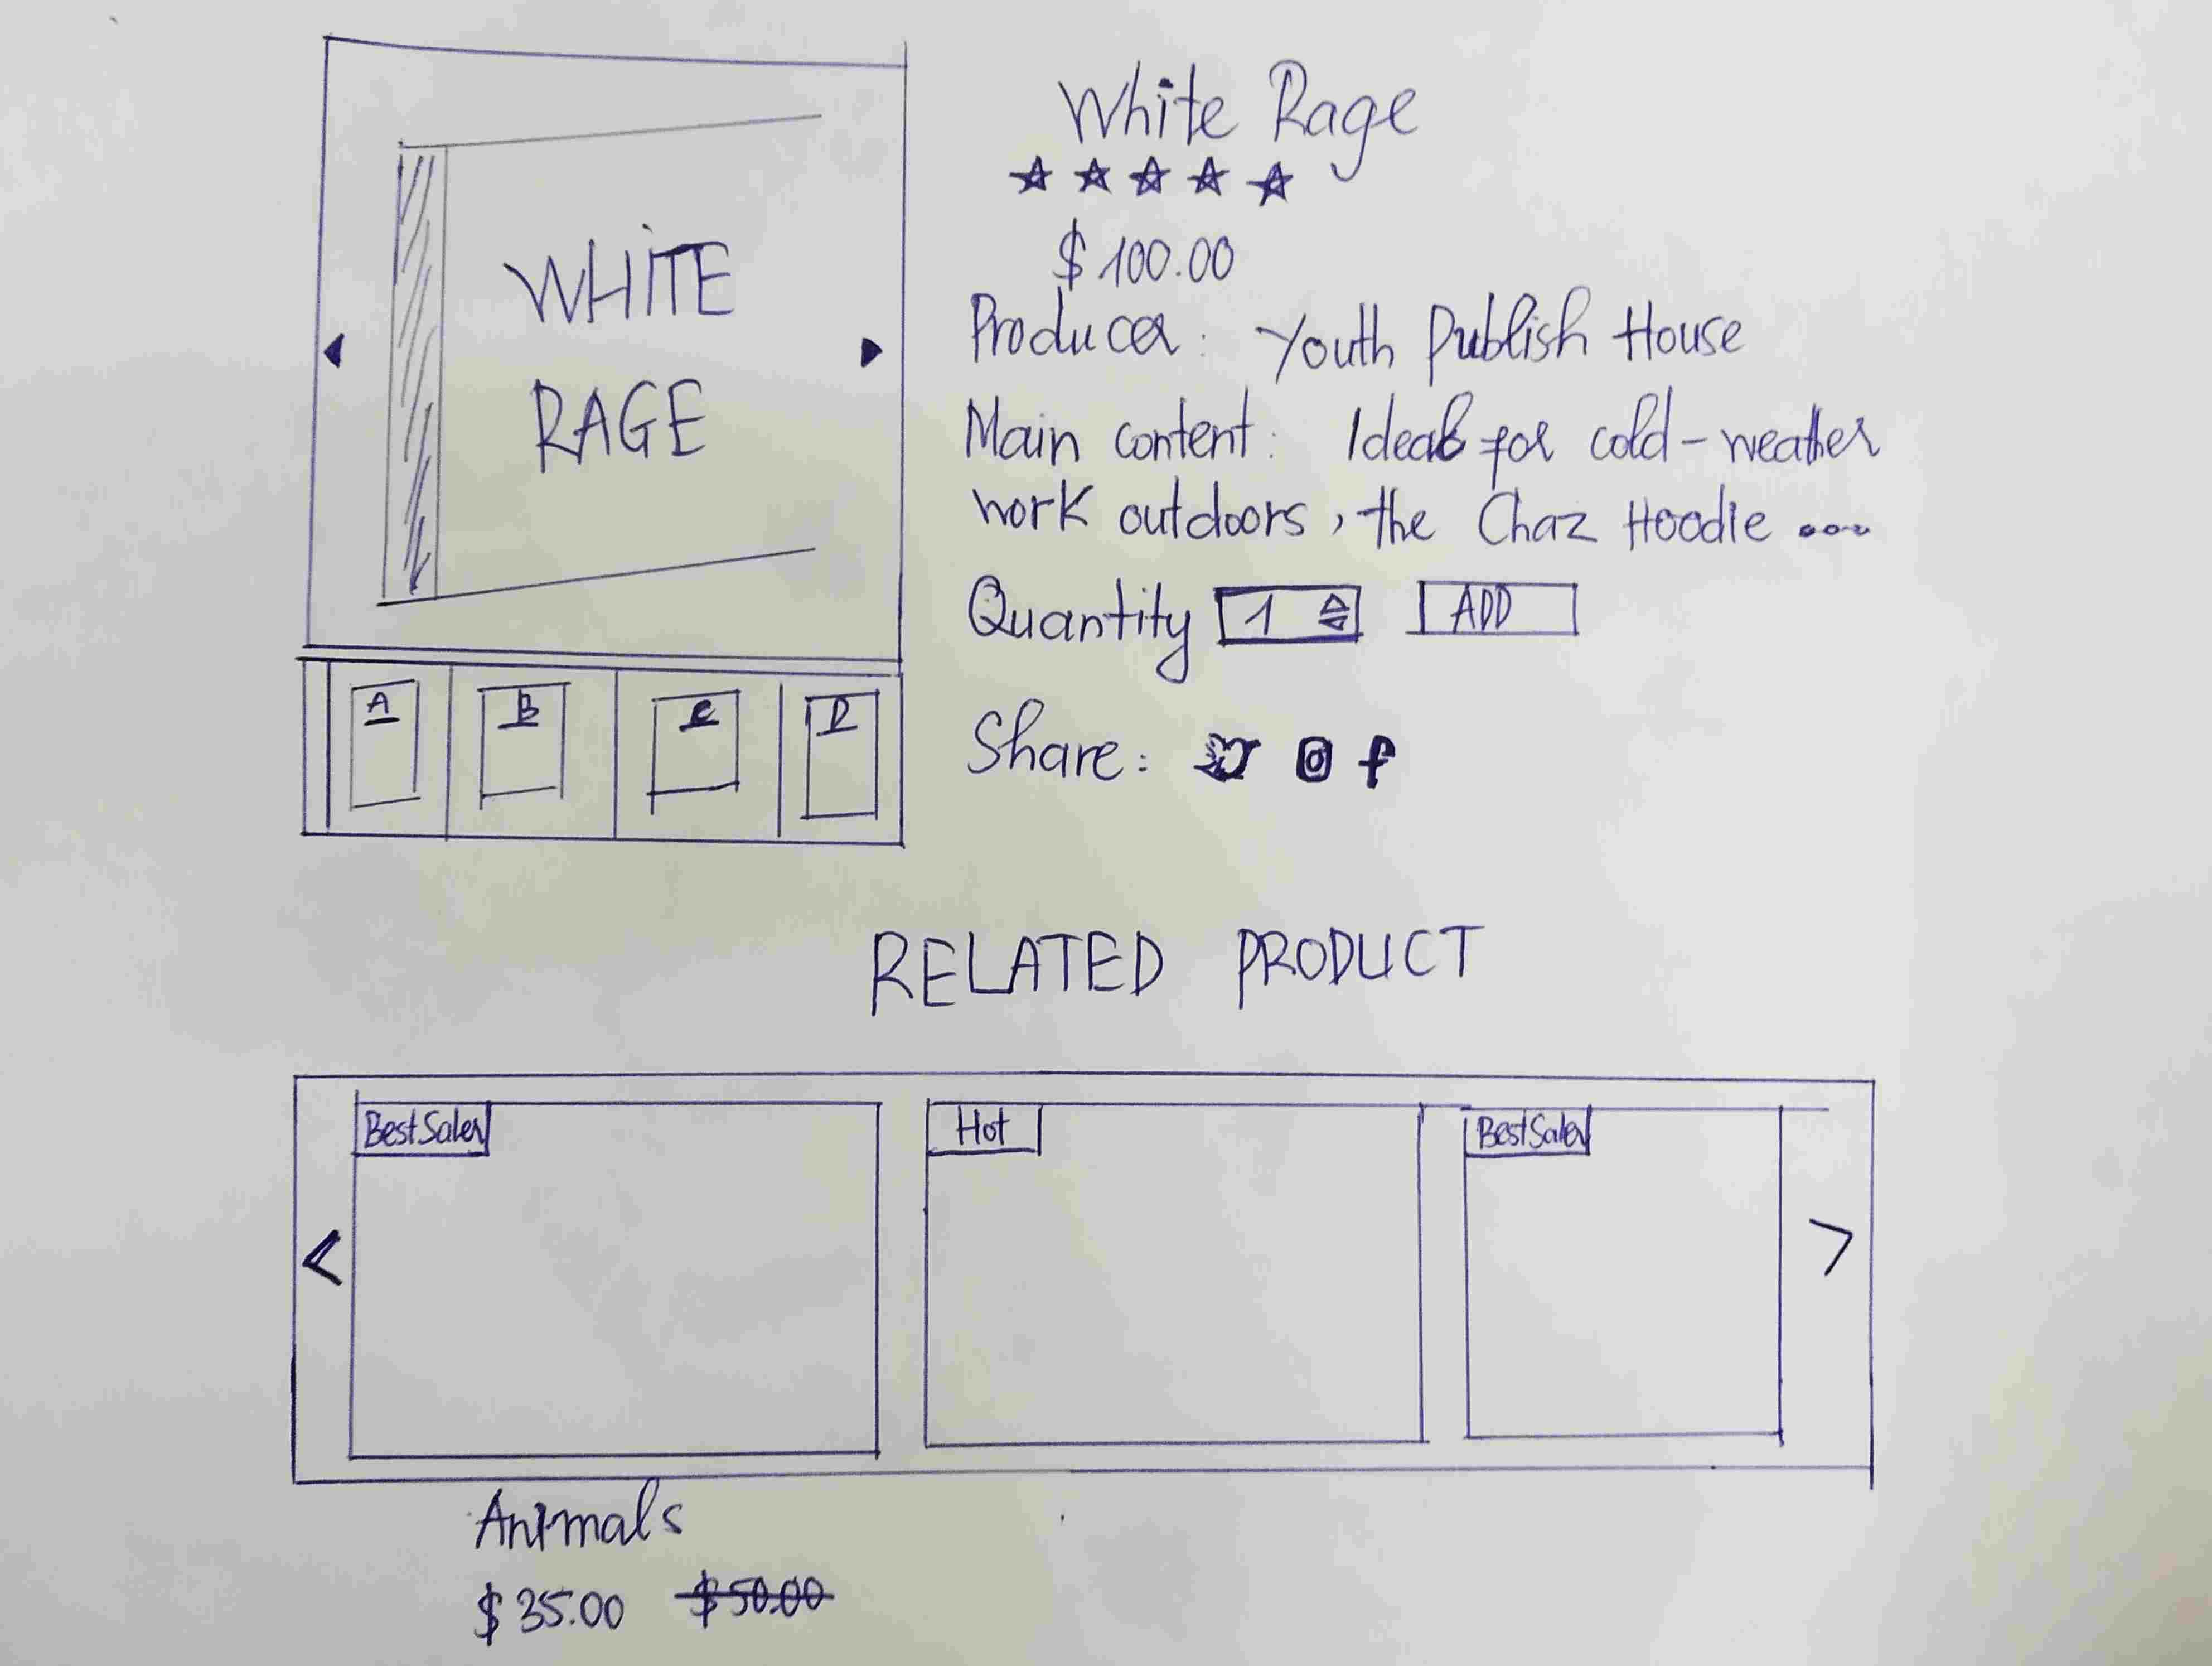 WHITE
RAGE
A
B
C
D
White Rage
$100.00
Producer: Youth Publish House
Main content: Ideal for cold-weather
work outdoors, the Chaz Hoodie ...
Quantity 1 ADD
Share:
RELATED PRODUCT
BestSaler
Hot
BestSaler
<
>
Animals
$35.00 $50.00